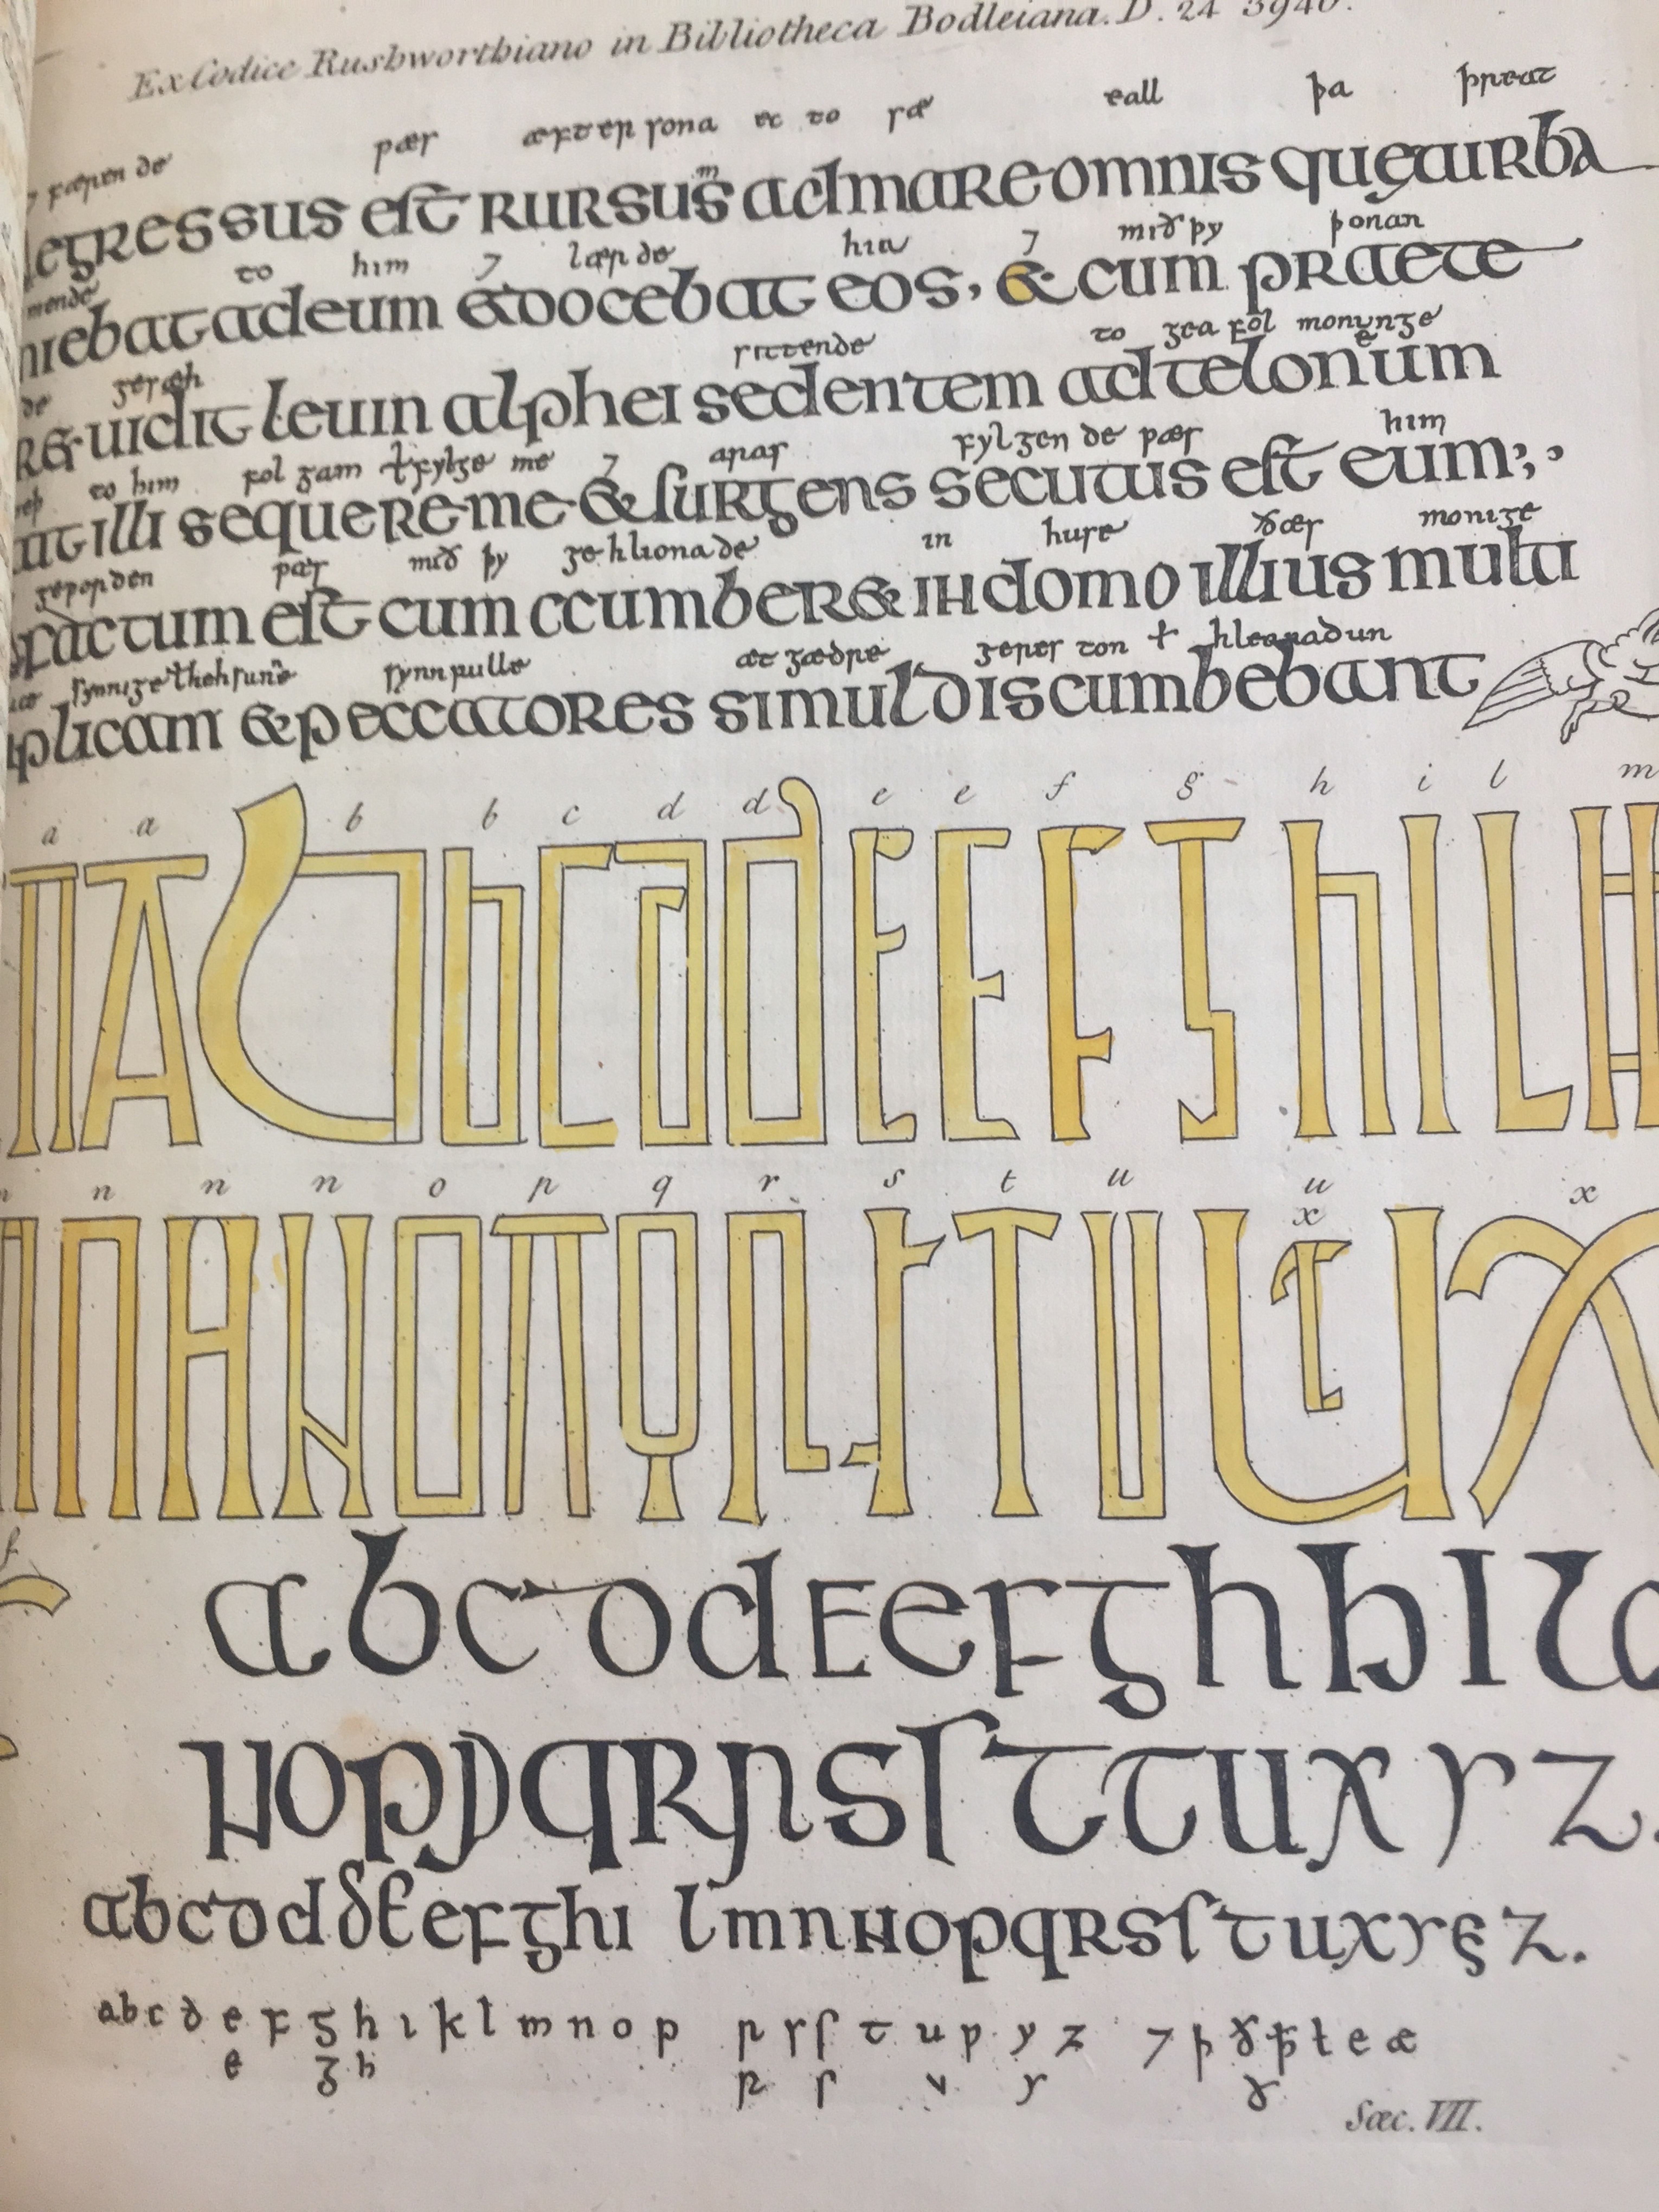 Ex Codice Rushworthiano in Bibliotheca Bodleiana. D. 24 3946.
⁊ færen de ƿæs æfter sona ec to sæ eall þa þreat
egressus est rursum s ad mare omnis quę turba
mende to him ⁊ lær de hia ⁊ mið þy þonan
niebat ad eum & docebat eos, & cum praete
de gesæh sittende to gea fol monunge
R& uidit leuin alphei sedentem ad teloneum
to him fol gam ł fylge me ⁊ aras fylgen de ƿæs him
ait illi sequere me & surgens secutus est eum;,
geƿorden ƿæs mið þy ge hlionade in huse ðær monige
factum est cum ccumber& in domo illius multi
synnige synnfulle æt gædre geres ton ł hleonadun
plicam & peccatores simul discumbebant
a a b b c d d e e f g h i l m
n n n o p q r s t u u x x
a b c d d e e f g h h i l
n o p p q r r s s t t u x y z.
a b c d d d e e f g h i l m n n o p q r s s t u x y ę z.
a b c d e f g h i k l m n o p r s s t u ƿ y z ⁊ þ ð ꝥ ł e æ
e g h r s v y ð
Sæc. VII.